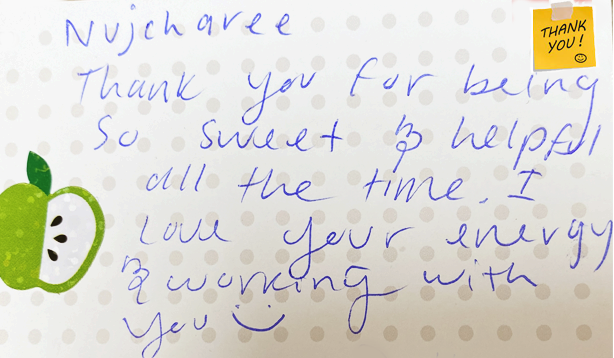 Nujcharee
THANK
YOU!
Thank you for being
So sweet & helpful
all the time. I
love your energy
& working with
you